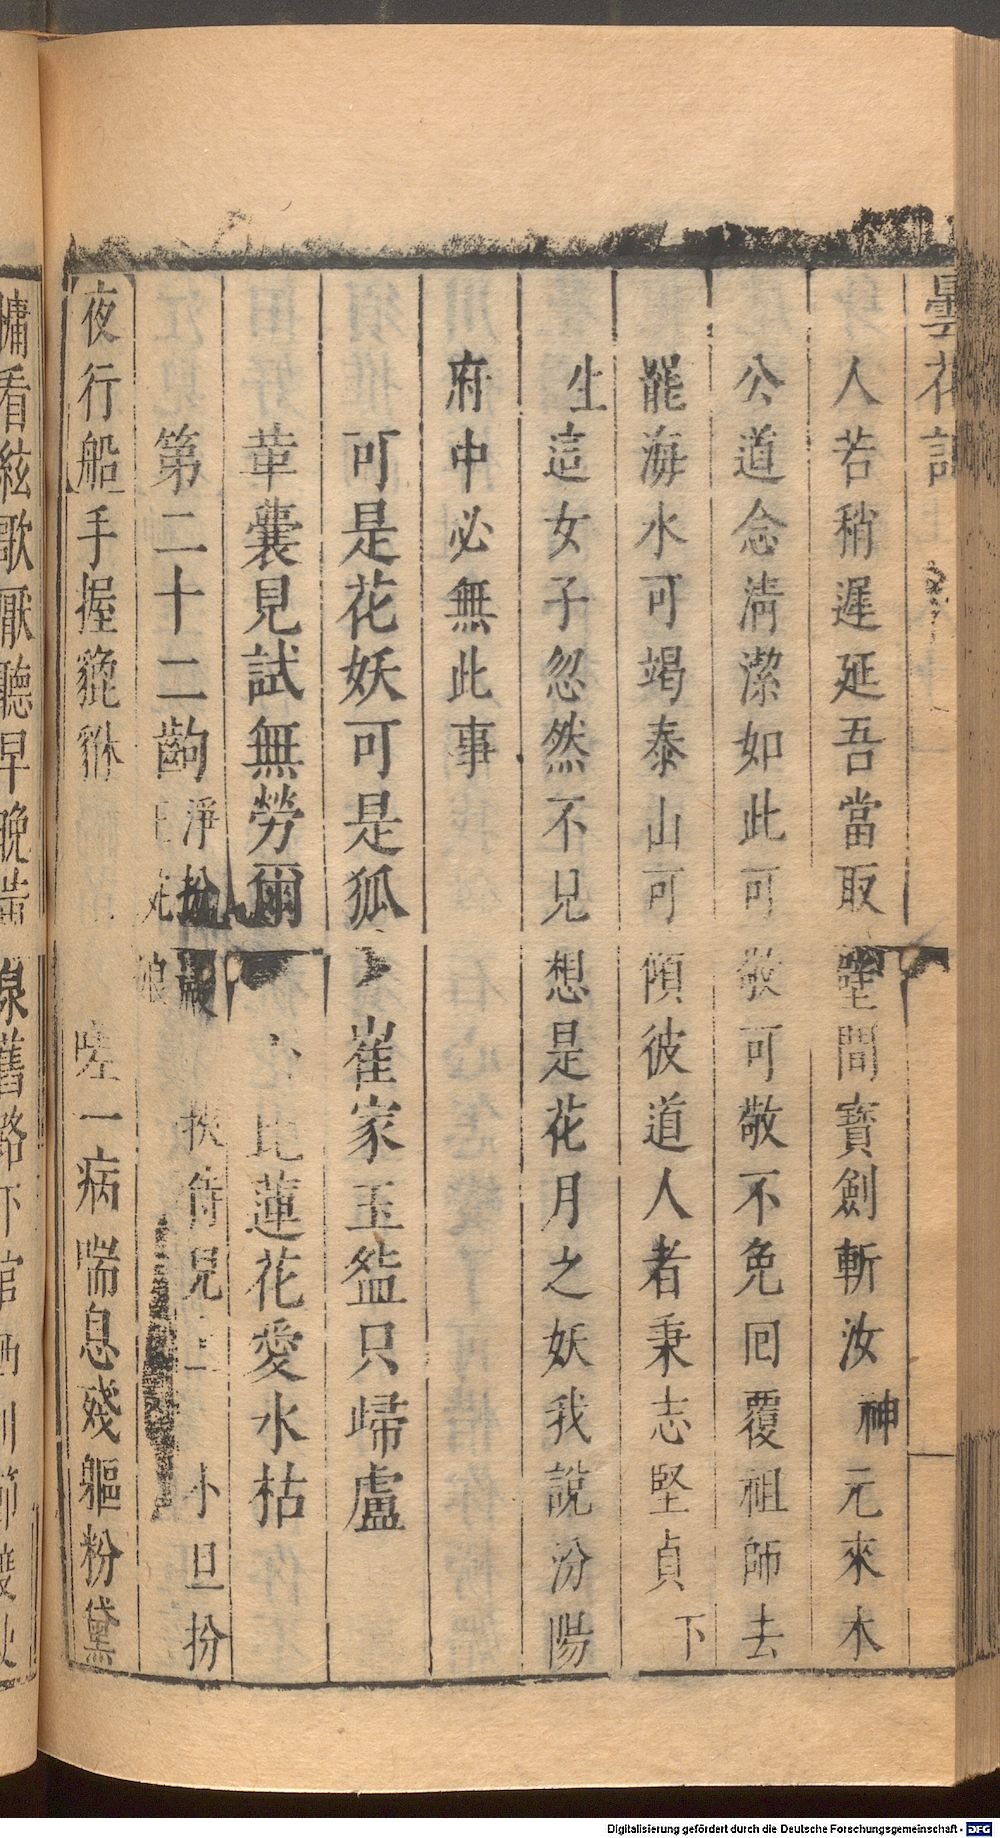 曇花記
人若稍遲延吾當取壁間寶劍斬汝神元來木
公道念清潔如此可敬可敬不免回覆祖師去
罷海水可竭泰山可傾彼道人者秉志堅貞下
生這女子忽然不見想是花月之妖我說汾陽
府中必無此事
可是花妖可是狐崔家玉盌只歸盧
華囊見試無勞爾比蓮花愛水枯
第二十二齣淨扮 挾侍兒上小旦扮
夜行船手握貔貅嗟一病喘息殘軀粉黛
慵看絃歌厭聽早晚
Digitalisierung gefördert durch die Deutsche Forschungsgemeinschaft - DFG